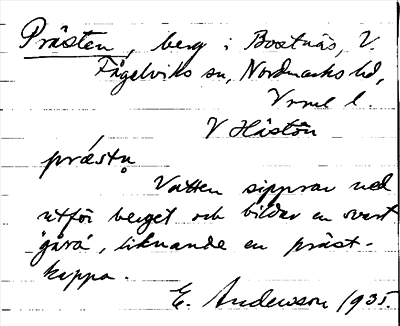 Prästen, berg i Bostnäs, V.
Fågelviks sn, Nordmarks hd,
Vrml l.
V Håstön
præstn̥
Vatten sipprar ned
utför berget och bildar en svart
"gårå", liknande en präst-
kappa.
E. Andersson 1935.